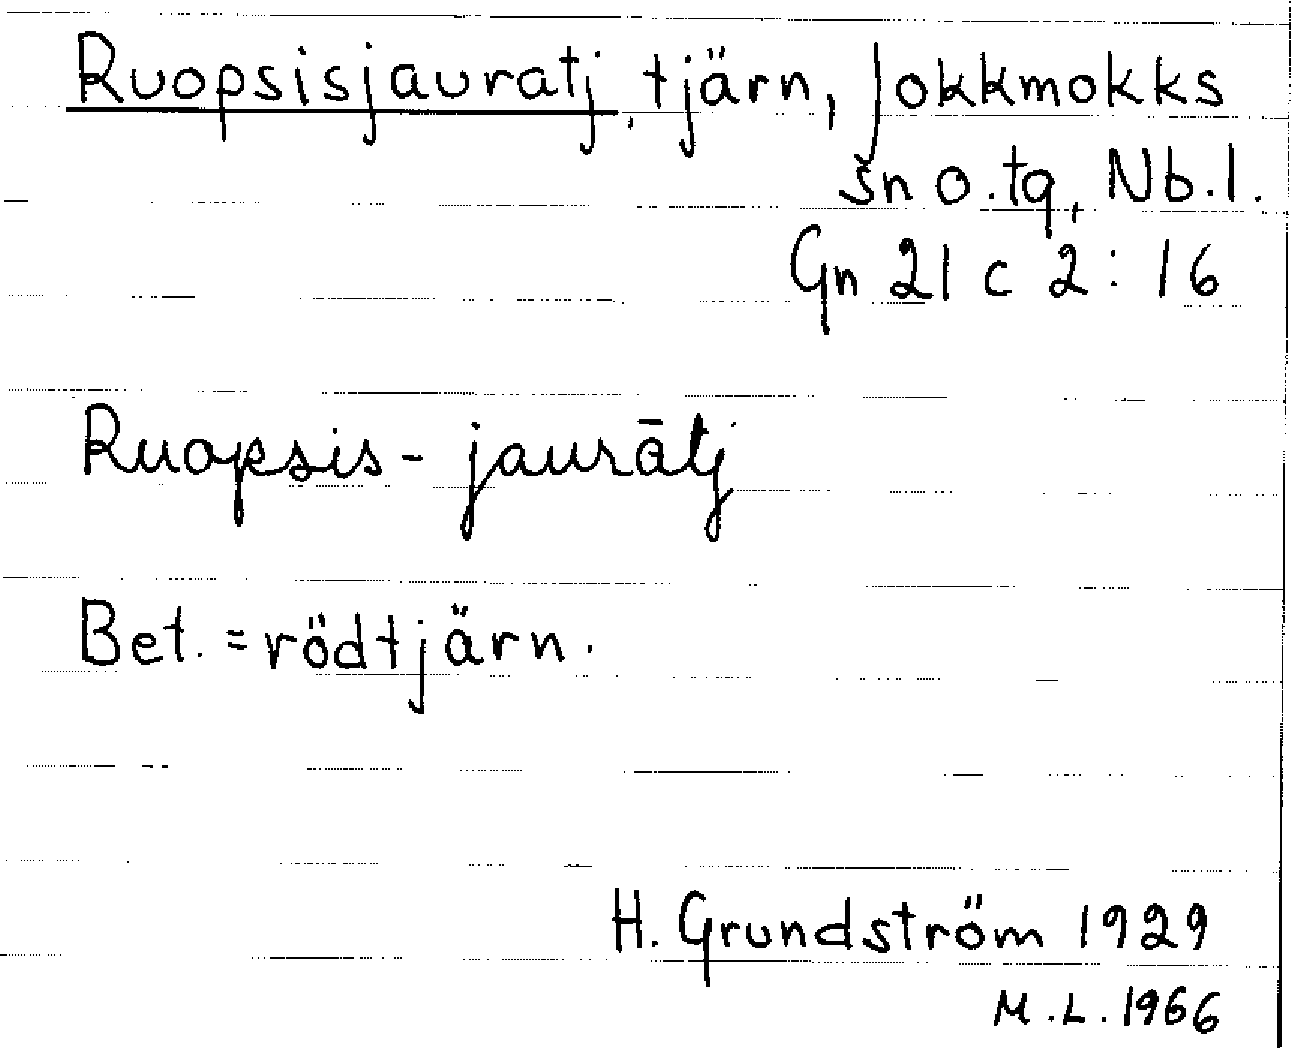 Ruopsisjauratj, tjärn, Jokkmokks
sn o. tg, Nb. l.
Gn 21 c 2:16
Ruopsis-jaurātj
Bet. = rödtjärn.
H. Grundström 1929
M.L. 1966